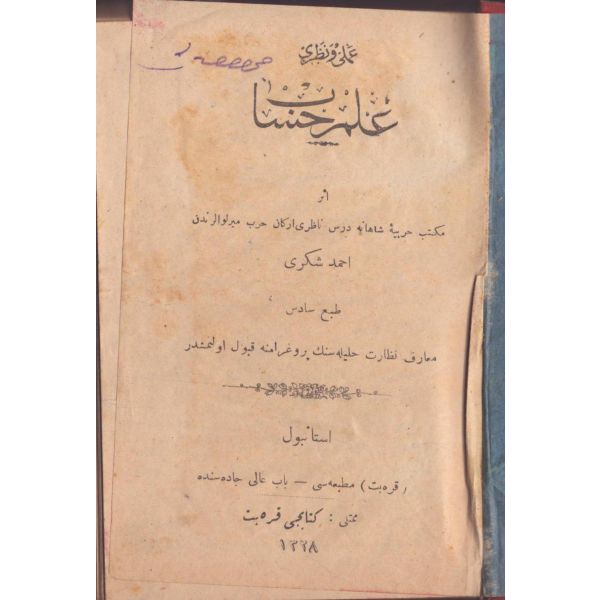 عملی و نظری
علم حساب
اثر
مکتب حربیهٔ شاهانه درس ناظری ارکان حرب میرلوالرندن
احمد شکری
طبع سادس
معارف نظارت جلیله‌سنك پروغرامنه قبول اولنمشدر
استانبول
(قره بت) مطبعه‌سی — باب عالی جاده‌سنده
محلی : کتابجی قره بت
١٣٢٨